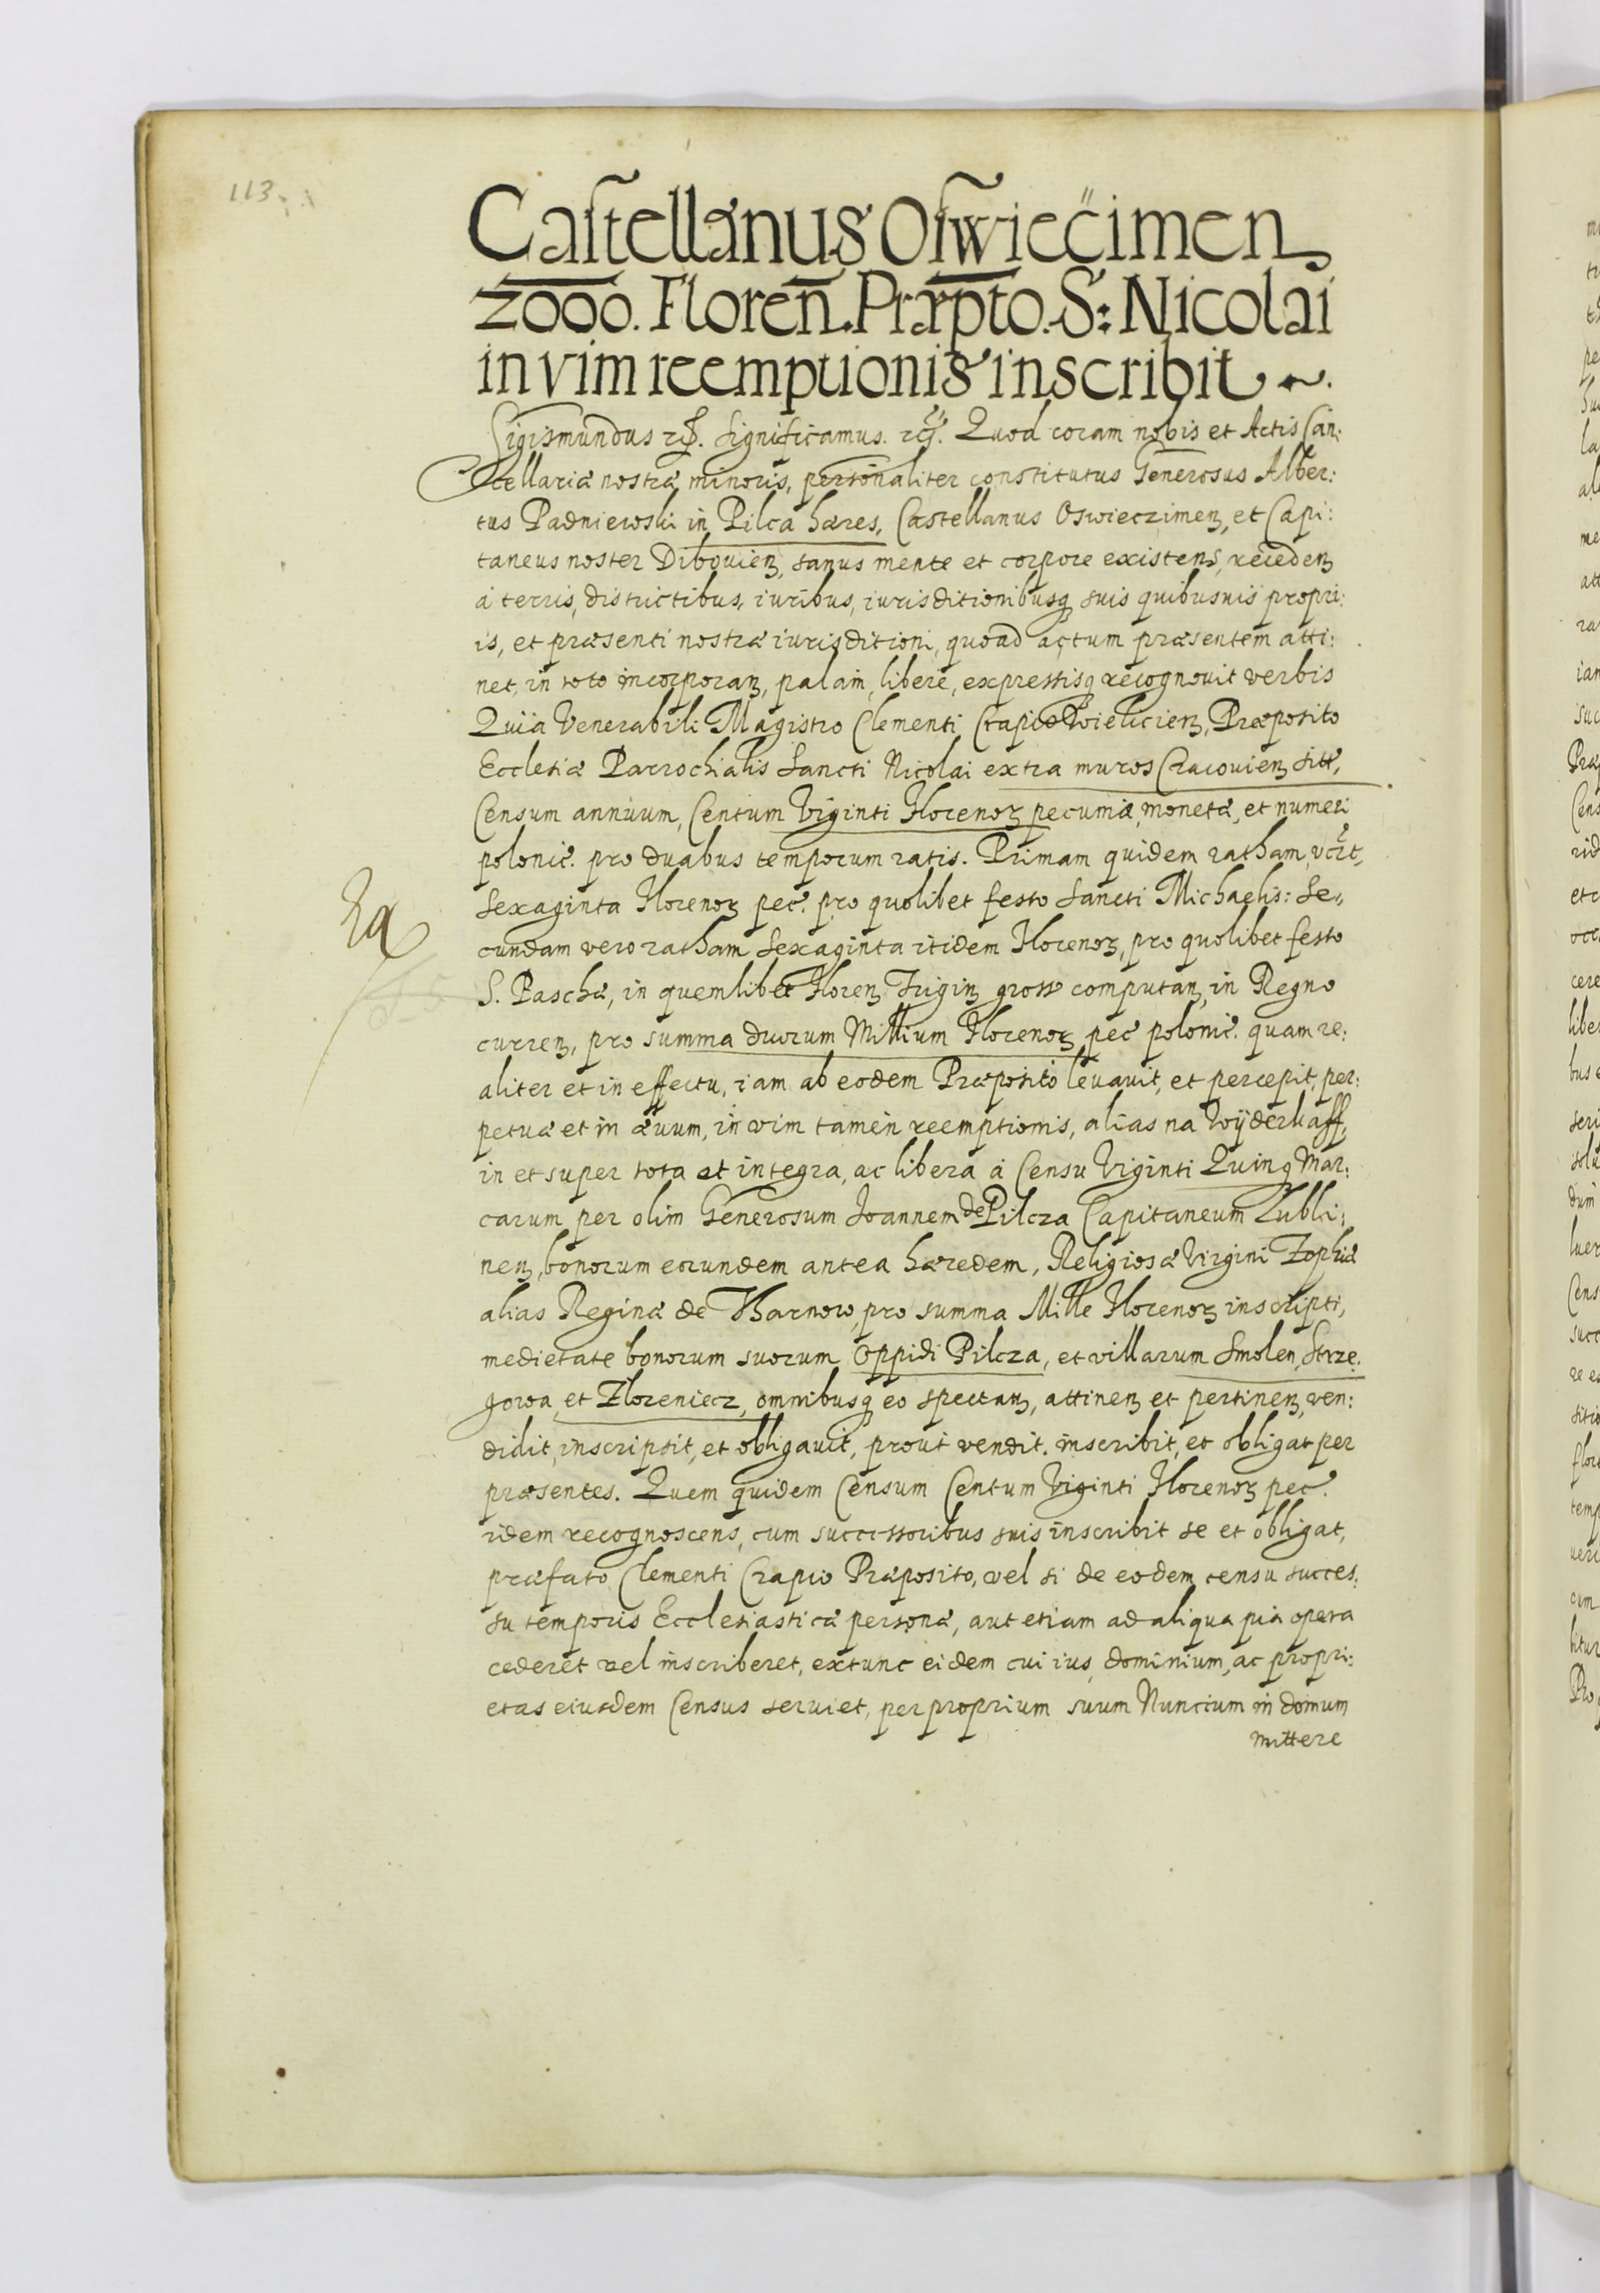 113
Castellanus Oswiecimen
2000. Floren. Præpto. S: Nicolai
in vim reemptionis inscribit
Sigismundus etc. Significamus. etc. Quod coram nobis et Actis Can:
cellariæ nostræ minoris, personaliter constitutus Generosus Alber:
tus Padniewski in Pilca hæres, Castellanus Oswieczimen, et Capi:
taneus noster Dibouien, sanus mente et corpore existens, receden
á terris, districtibus, iuribus, iurisditionibusq suis quibusuis propri:
is, et præsenti nostræ iurisditioni, quoad actum præsentem atti:
net, in toto incorporan, palam, libere, expressisq recognouit verbis
Quia Venerabili Magistro Clementi Crapicio Wieliciens, Præposito
Ecclesiæ Parrochialis Sancti Nicolai extra muros Cracouien sitæ,
Censum annuum, Centum Viginti Florenor pecuniæ, monetæ, et numeri
polonic. pro duabus temporum ratis. Primam quidem ratham, vczt,
Sexaginta Florenor pec. pro quolibet festo Sancti Michaelis: Se,,
cundam vero ratham Sexaginta itidem Florenor, pro quolibet festo
S. Paschæ, in quemlibet Floren Trigin gross computan, in Regno
curren, pro summa duorum Millium Florenor pec polonic. quam re:
aliter et in effectu, iam ab eodem Præposito leuauit, et percepit, per:
petuæ et in æuum, in vim tamen reemptionis, alias na Wÿderkaff,
in et super tota et integra, ac libera á Censu Viginti Quinq Mar:
carum per olim Generosum Joannem de Pilcza Capitaneum Lubli:
nen, bonorum eorundem antea hæredem, Religiosæ Virgini Zophiæ
alias Reginæ de Tharnow, pro summa Mille Florenor inscripti,
medietate bonorum suorum Oppidi Pilcza, et villarum Smolen, Strze:
gowa, et Zloreniecz, omnibusq eo spectan, attinen et pertinen, ven:
didit, inscripsit, et obligauit, prout vendit. inscribit, et obligat per
præsentes. Quem quidem Censum Centum Viginti Florenor pec.
idem recognoscens, cum successoribus suis inscribit se et obligat,
præfato Clementi Crapio Præposito, vel si de eodem censu succes:
su temporis Ecclesiasticæ personæ, aut etiam ad aliqua pia opera
cederet vel inscriberet, extunc eidem cui ius, dominium, ac propri:
etas eiusdem Census seruiet, per proprium suum Nuncium in domum
mittere